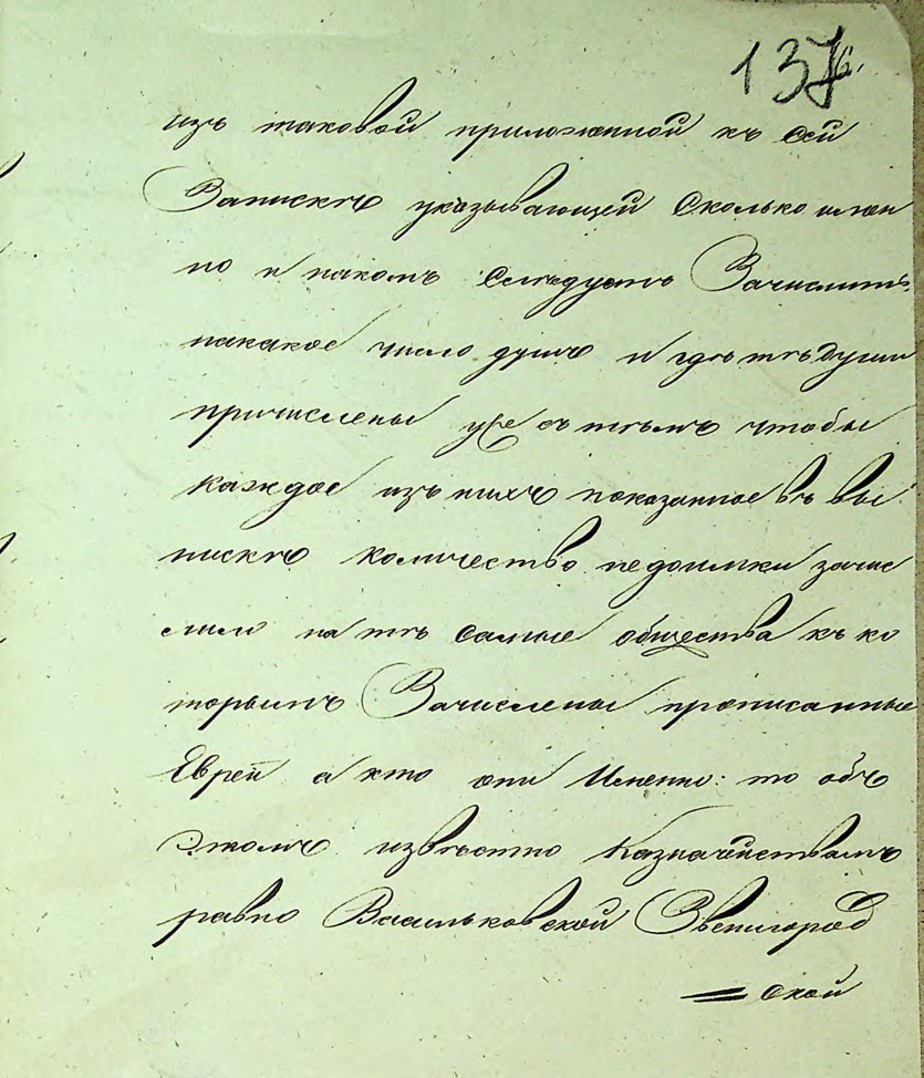 137
изъ таковой приложенной къ сей
Запискѣ указывающей сколько имен
но и накомъ слѣдуетъ Зачислить
накакое число душъ и гдѣ тѣ души
причислены уже съ тѣмъ чтобы
каждое изъ нихъ показанное въ вы
пискѣ количество недоимки зачис
лило на тѣ самые общества къ ко
торымъ Зачислены прописанные
Евреи а кто они Именно: то объ
Этомъ извѣстно Казначействамъ
равно Васильковской Звенигород
= ской